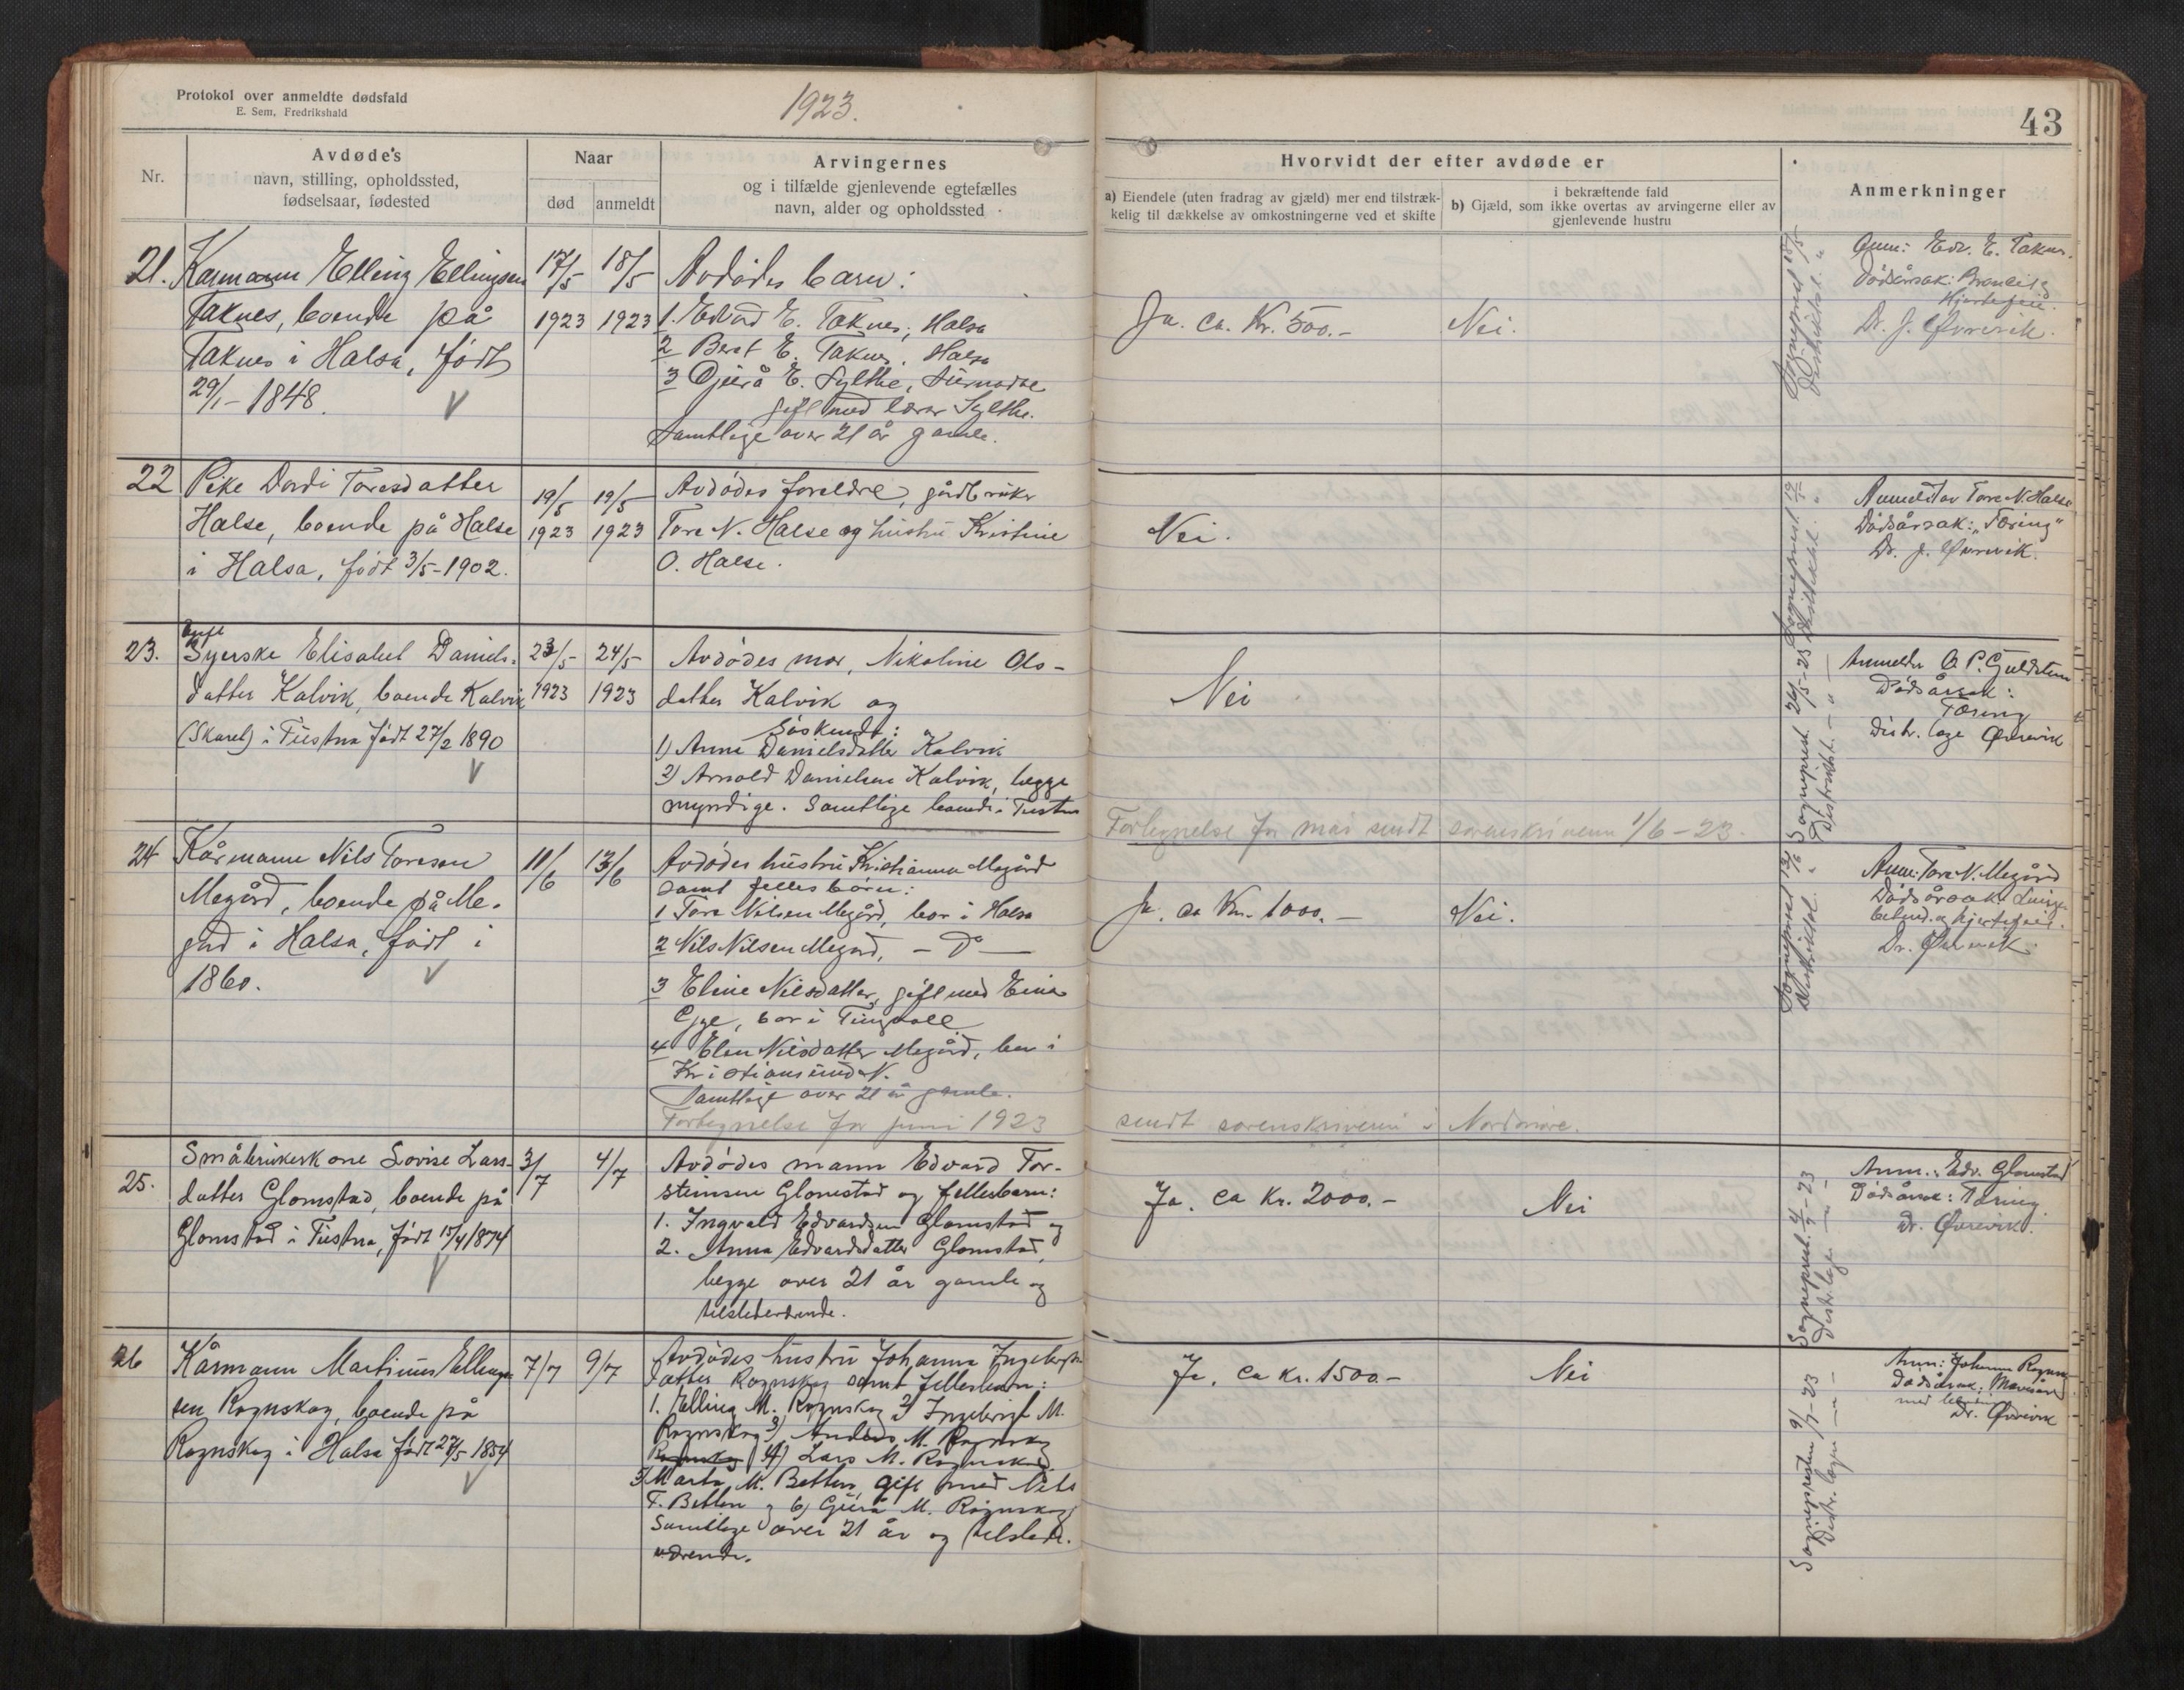 Protokol over anmeldte dødsfald
E. Sem, Fredrikshald
1923.
43
Nr.
Avdøde's
navn, stilling, opholdssted,
fødselsaar, fødested
Naar
død
anmeldt
Arvingernes
og i tilfælde gjenlevende egtefælles
navn, alder og opholdssted
Hvorvidt der efter avdøde er
a) Eiendele (uten fradrag av gjæld) mer end tilstræk-
kelig til dækkelse av omkostningerne ved et skifte
i bekræftende fald
b) Gjæld, som ikke overtas av arvingerne eller av
gjenlevende hustru
Anmerkninger
21. Karmann Elling Ellingsen
Taknes, boende på
Taknes i Halsa, født
29/1-1848.
17/5
1923
18/5
1923
Avdødes barn:
1. Edvard E. Taknes, Halsa
2 Beret E. Taknes, Halsa
3 Gjurå E. Sylthe, Surnadal
gift med lærer Sylthe.
Samtlige over 21 år gamle.
Ja. ca. Kr. 500.-
Nei.
Sogneprest 18/5
Distriktsl. "
Anm: Edv. E. Taknes.
Dødsårsak:
Hjertefeil.
Dr. J. Øvrevik.
22 Pike Dordi Toresdatter
Halse, boende på Halse
i Halsa, født 3/5-1902.
19/5
1923
19/5
1923
Avdødes foreldre, gårdbruker
Tore N. Halse og hustru Kristine
O. Halse.
Nei.
Sogneprest 19/5
Distriktsl. "
Anmeldt av Tore N. Halse
Dødsårsak: "Tæring"
Dr. J. Øvrevik.
23. Ugift
Syerske Elisabet Daniels-
datter Kalvik, boende Kalvik
(Skaret) i Tustna født 27/2 1890
23/5-
1923
24/5-
1923
Avdødes mor, Nikoline Ols-
datter Kalvik og
Søskende:
1) Anne Danielsdatter Kalvik og
2) Arnold Danielsen Kalvik, begge
myndige. Samtlige boende i Tustna
Nei
Sogneprest 24/5-23
Distriktsl. - " -
Anmelder O. P. Guldstein
Dødsårsak:
Tæring
Distr. læge Øvrevik
Fortegnelse for mai sendt sorenskriveren 1/6-23.
24 Kårmann Nils Toresen
Megård, boende på Me-
gård i Halsa, født i
1860.
11/6
13/6
Avdødes hustru Kristianna Megård
samt felles børn:
1 Tore Nilsen Megård, bor i Halsa
2 Nils Nilsen Megård, - Do -
3 Eline Nilsdatter, gift med Einar
Gjøl, bor i Tingvoll
4 Elen Nilsdatter Megård, bor i
Kristiansund N.
Samtlige over 21 år gamle.
Ja, ca Kr. 1000.-
Nei.
Sogneprest 13/6
Distriktsl. "
Anm: Tore N. Megård
Dødsårsak: Lunge-
betend. og hjertefeil.
Dr. Øvrevik.
Fortegnelse for juni 1923 sendt sorenskriveren i Nordmøre.
25. Småbrukerkone Lovise Lars-
datter Glomstad, boende på
Glomstad i Tustna, født 15/4 1874
3/7
4/7
Avdødes mann Edvard Tor-
steinsen Glomstad og fellesbarn:
1. Ingvald Edvardsen Glomstad og
2. Anna Edvardsdatter Glomstad,
begge over 21 år gamle og
tilstedeværende.
Ja. ca Kr. 2000.-
Nei
Sogneprest. 4/7-23
Distr. læge - " -
Anm.: Edv. Glomstad
Dødsårsak: Tæring
Dr. Øvrevik.
26 Kårmann Martinus Elling-
sen Rognskog, boende på
Rognskog i Halsa født 27/5 1854
7/7
9/7
Avdødes hustru Johanna Ingebrigts-
datter Rognskog samt fellesbarn:
1. Elling M. Rognskog 2) Ingebrigt M.
Rognskog 3) Anders M. Rognskog
Rognskog 4) Lars M. Rognskog
5) Marta M. Betten, gift med Nils
T. Betten og 6) Gjurå M. Rognskog
Samtlige over 21 år og tilstede-
værende.
Ja, ca kr. 1500.-
Nei
Sognepresten 9/7-23
Distr. lægen - " -
Anm: Johanna Rognskog
Dødsårsak: Mavesår
med
Dr. Øvrevik